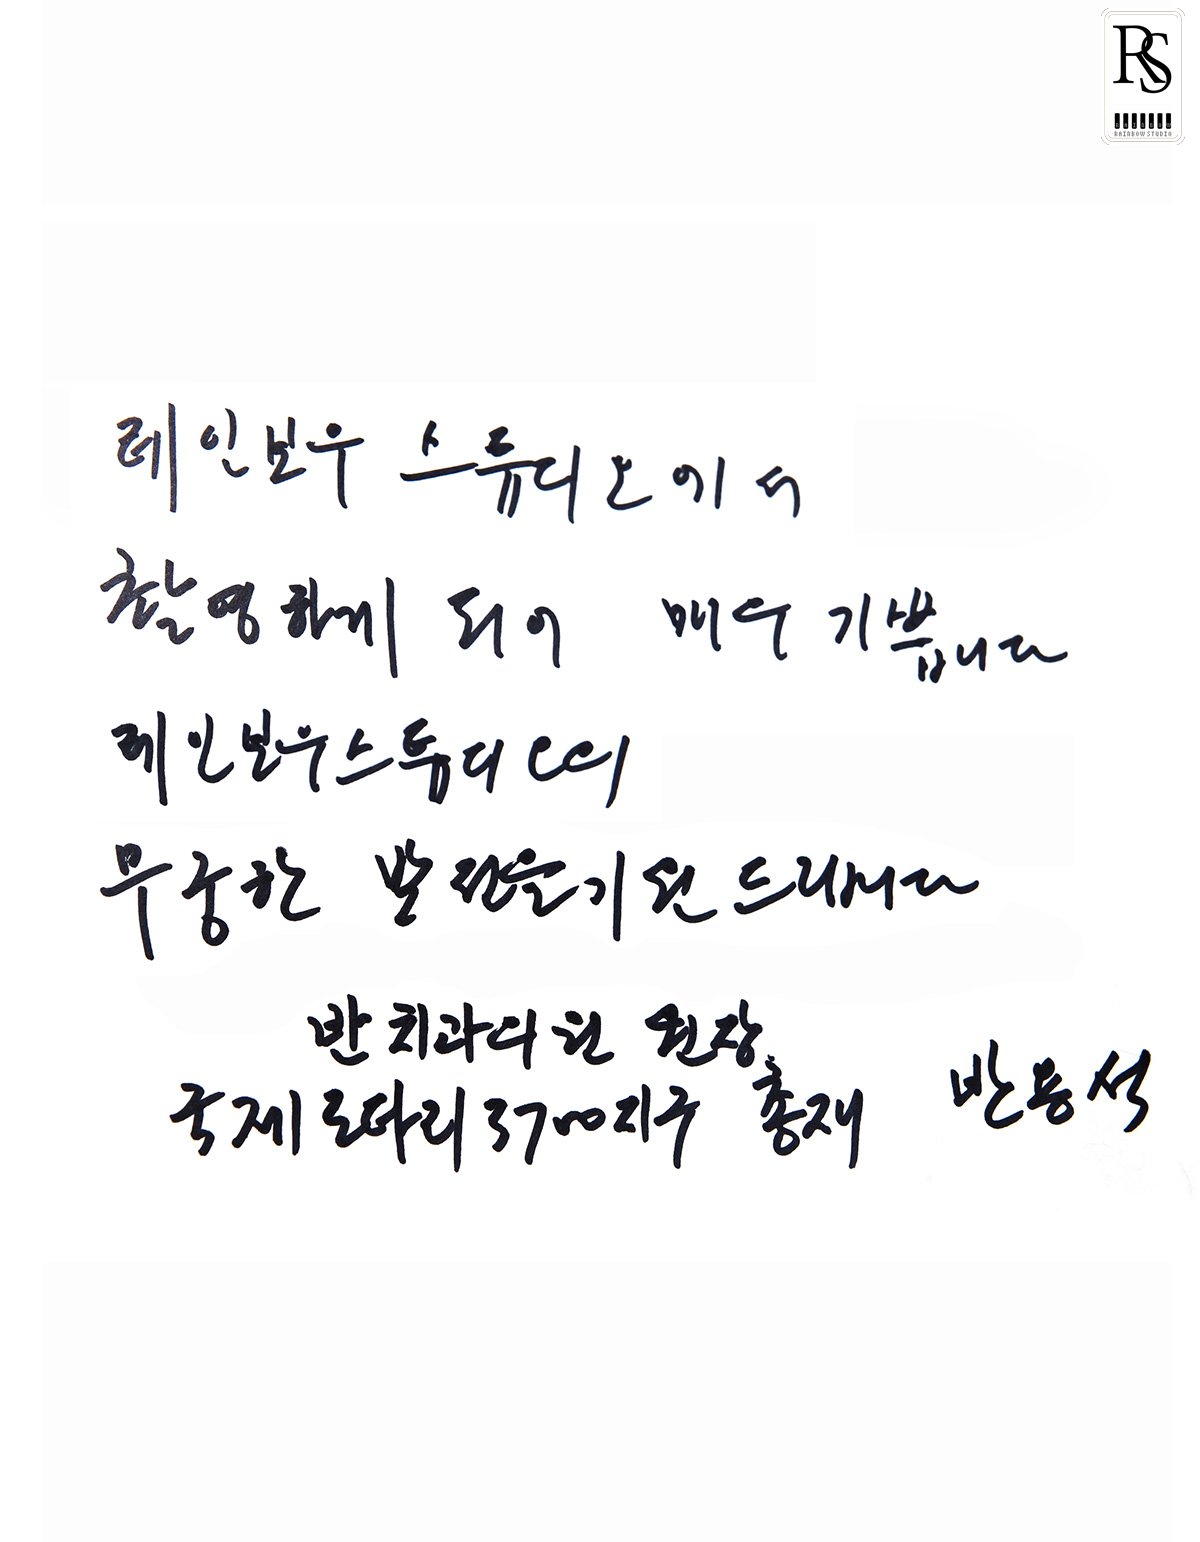 RS
RAINBOW STUDIO
레인보우 스튜디오에서
촬영하게 되어 매우 기쁩니다
레인보우스튜디오의
무궁한 발전을 기원드립니다
반치과의원 원장
국제로타리3700지구 총재 반용석